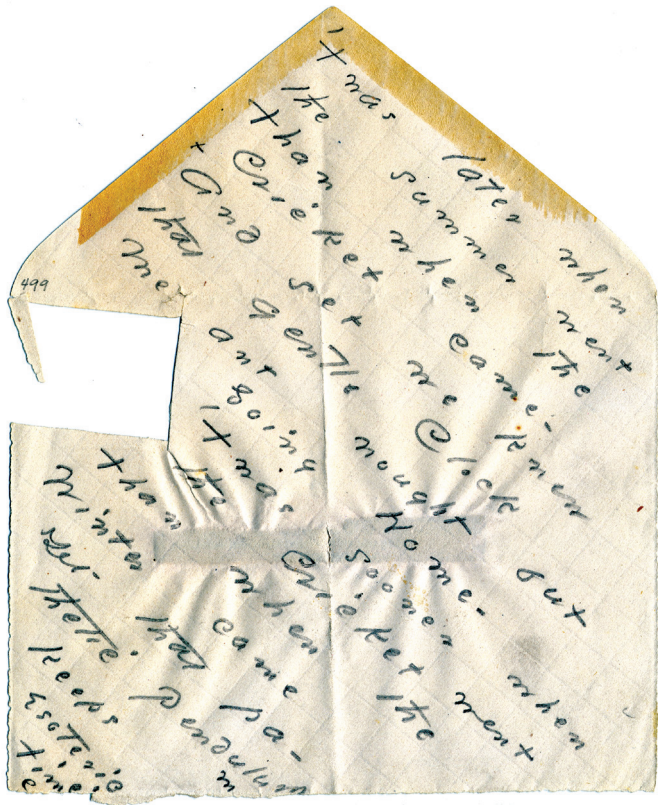 499
'Twas later when
the summer went
Than when the
Cricket came -
And yet we knew
that gentle Clock
meant nought but
going Home -
'Twas sooner when
the Cricket went
Than when the
Winter came
yet that pa-
thetic Pendulum
keeps
esoteric
time